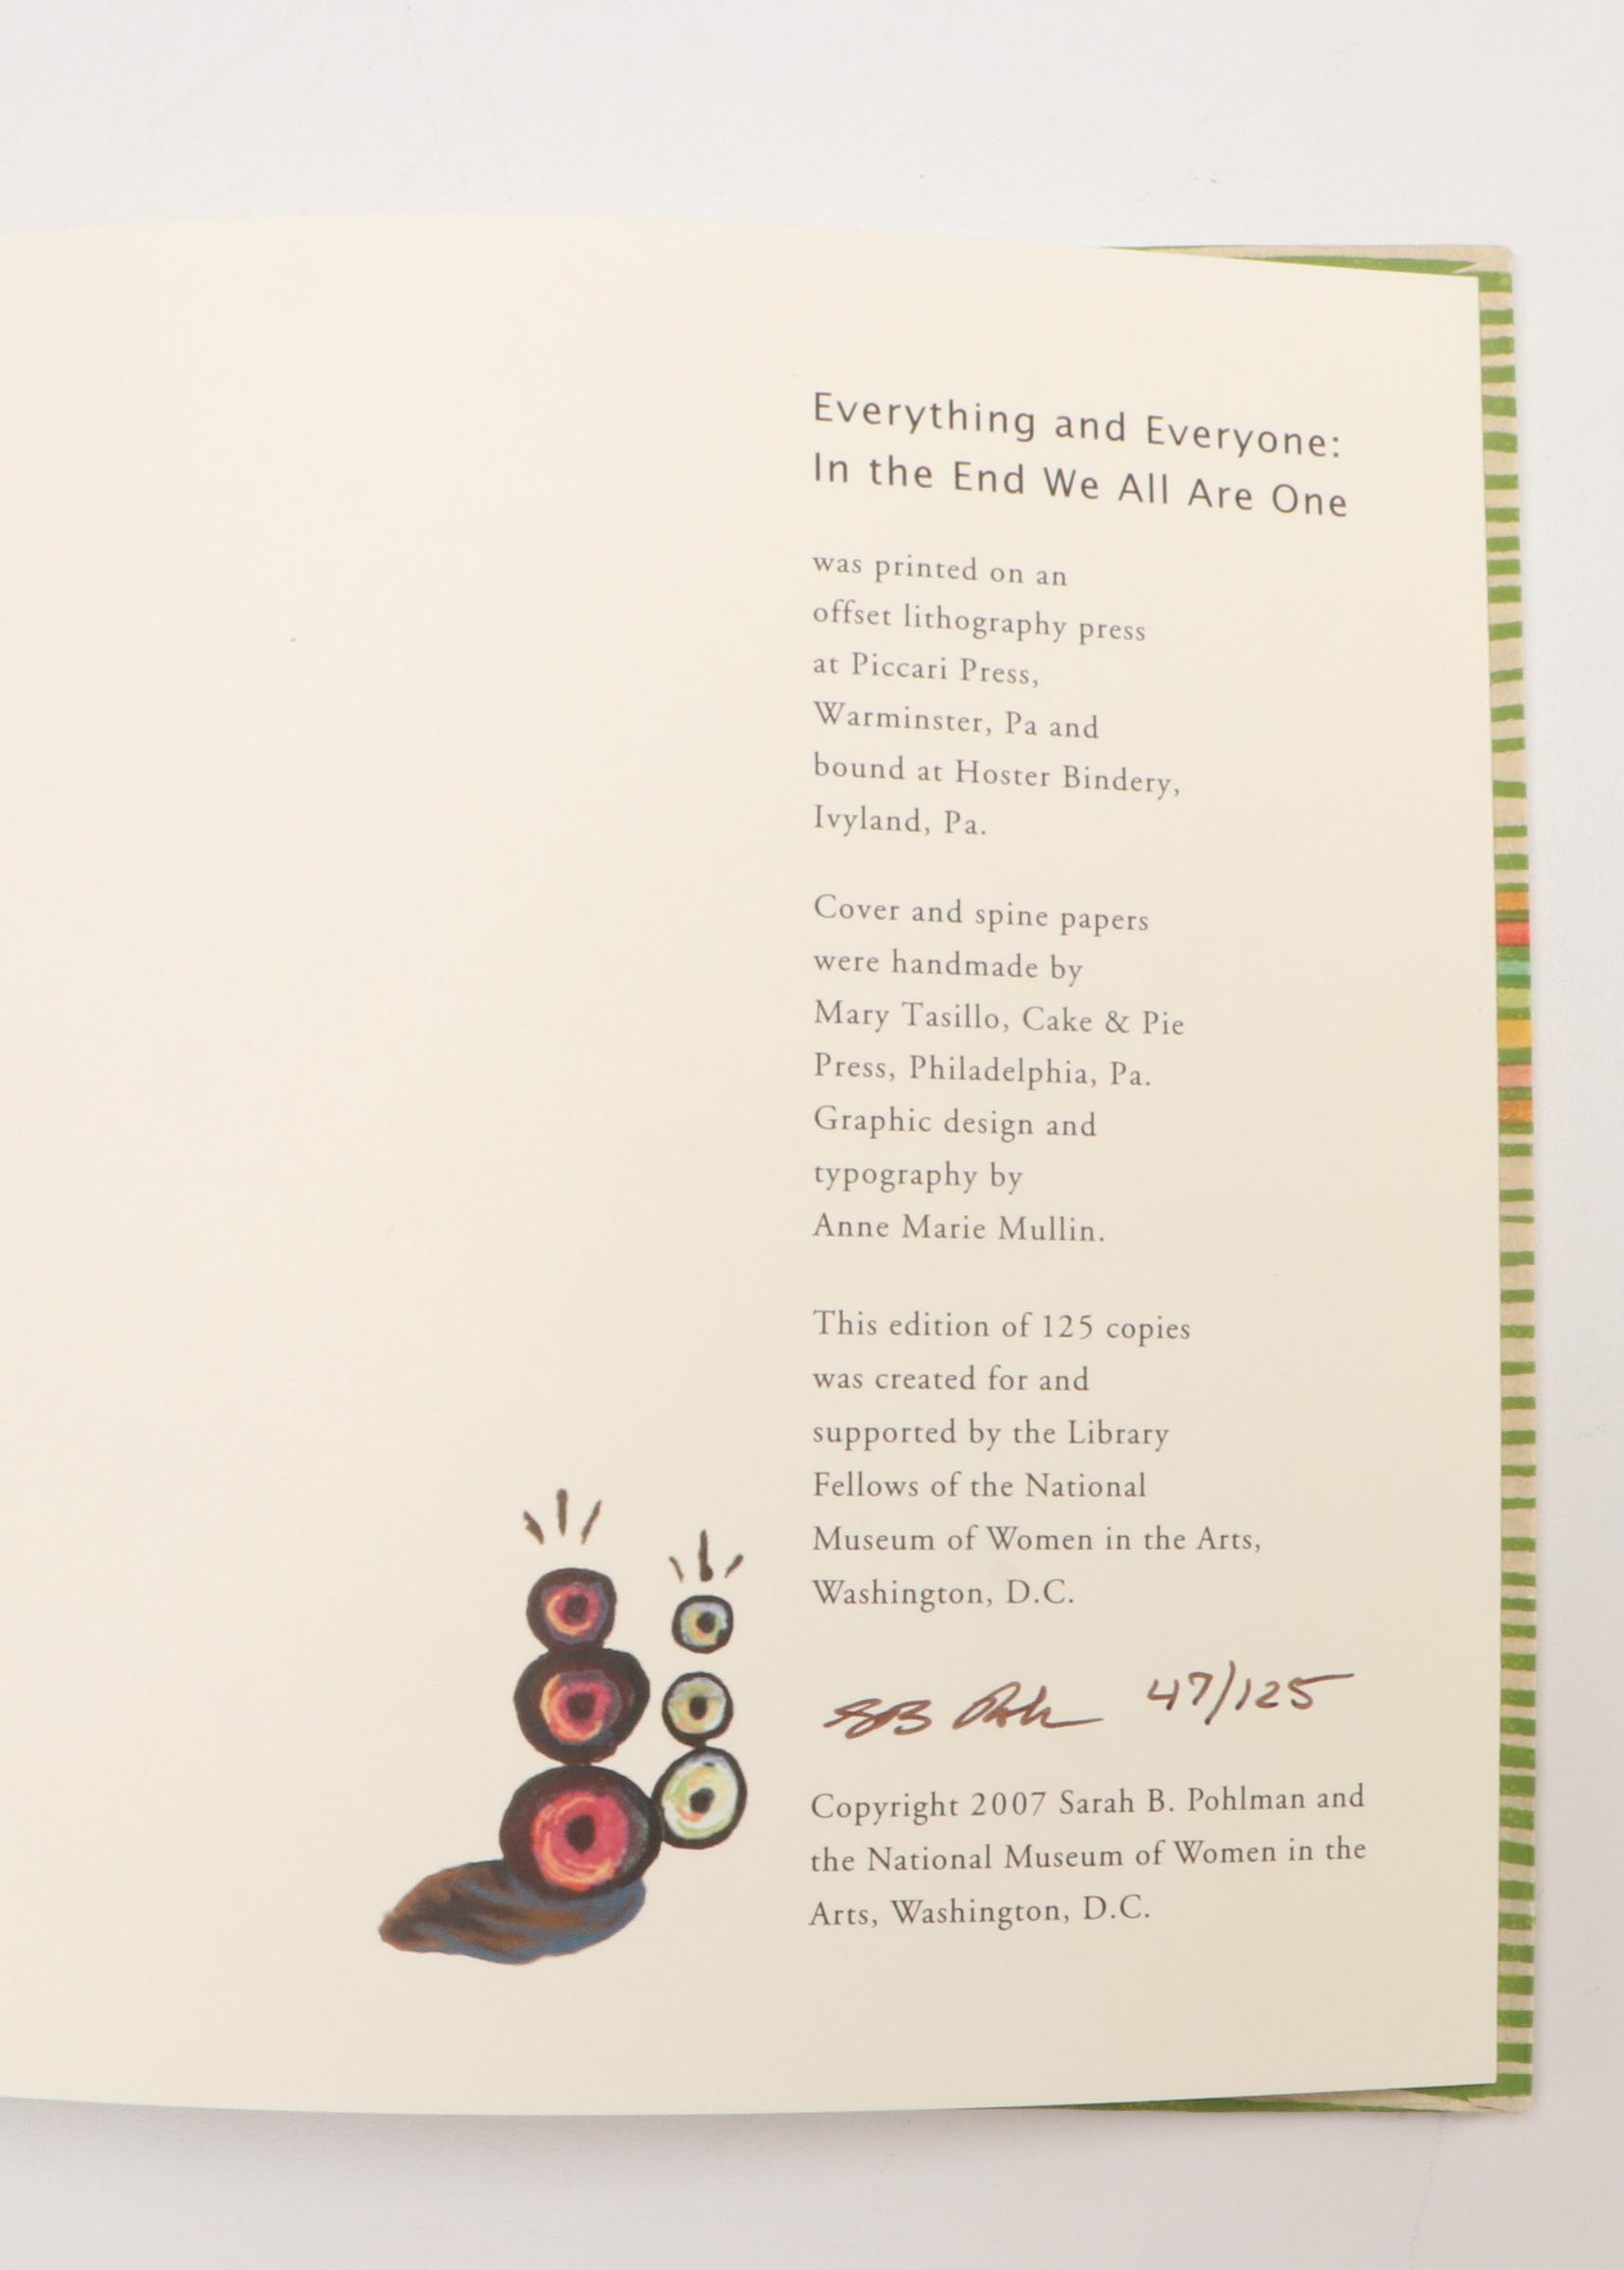 Everything and Everyone:
In the End We All Are One
was printed on an
offset lithography press
at Piccari Press,
Warminster, Pa and
bound at Hoster Bindery,
Ivyland, Pa.
Cover and spine papers
were handmade by
Mary Tasillo, Cake & Pie
Press, Philadelphia, Pa.
Graphic design and
typography by
Anne Marie Mullin.
This edition of 125 copies
was created for and
supported by the Library
Fellows of the National
Museum of Women in the Arts,
Washington, D.C.
47/125
Copyright 2007 Sarah B. Pohlman and
the National Museum of Women in the
Arts, Washington, D.C.